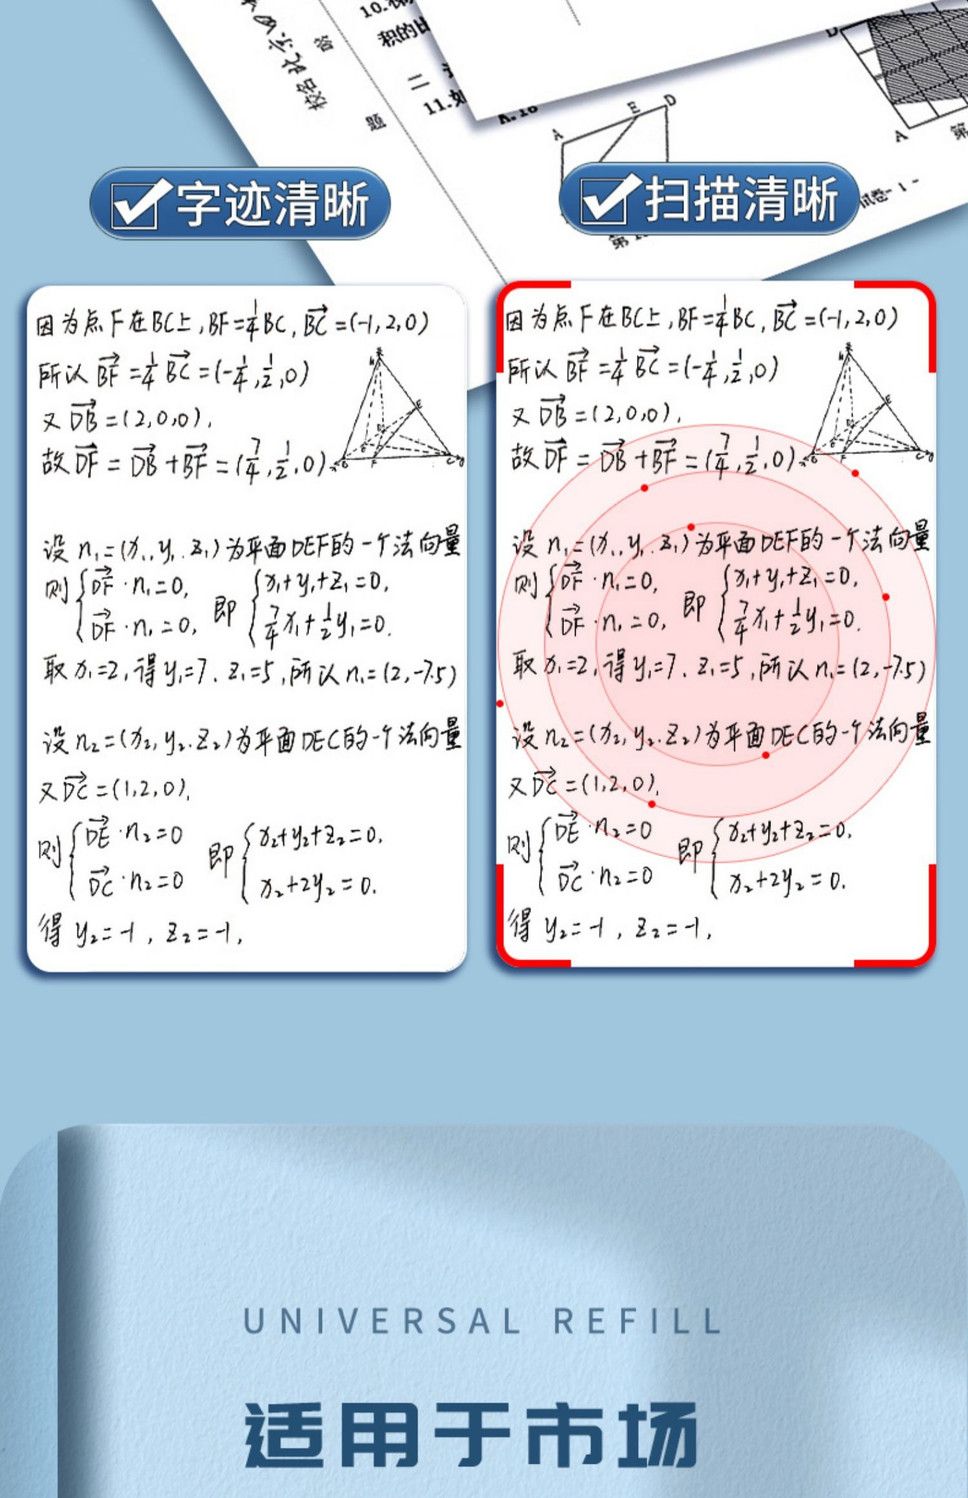 10.
积的比
二
11.如
A.18
题
A
E
D
A
第
试卷-1-
字迹清晰
扫描清晰
因为点F在BC上,BF=¼BC,BC→=(-1,2,0)
所以BF→=¼BC→=(-¼,½,0)
又DB→=(2,0,0),
故DF→=DB→+BF→=(7/4,½,0)
设n₁=(x₁,y₁,z₁)为平面DEF的一个法向量
则{DF→·n₁=0, 即{x₁+y₁+z₁=0,
DF→·n₁=0, 7/4x₁+½y₁=0.
取x₁=2,得y₁=7.z₁=5,所以n₁=(2,-7.5)
设n₂=(x₂,y₂.z₂)为平面DEC的一个法向量
又DC→=(1,2,0),
则{DE→·n₂=0 即{x₂+y₂+z₂=0,
DC→·n₂=0 x₂+2y₂=0.
得y₂=-1,z₂=-1,
因为点F在BC上,BF=¼BC,BC→=(-1,2,0)
所以BF→=¼BC→=(-¼,½,0)
又DB→=(2,0,0),
故DF→=DB→+BF→=(7/4,½,0)
设n₁=(x₁,y₁,z₁)为平面DEF的一个法向量
则{DF→·n₁=0, 即{x₁+y₁+z₁=0,
DF→·n₁=0, 7/4x₁+½y₁=0.
取x₁=2,得y₁=7.z₁=5,所以n₁=(2,-7.5)
设n₂=(x₂,y₂.z₂)为平面DEC的一个法向量
又DC→=(1,2,0),
则{DE→·n₂=0 即{x₂+y₂+z₂=0,
DC→·n₂=0 x₂+2y₂=0.
得y₂=-1,z₂=-1,
UNIVERSAL REFILL
适用于市场